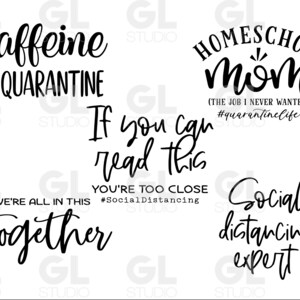 affeine
QUARANTINE
HOMESCHO
mom
(THE JOB I NEVER WANTE
#quarantinelife
If you can
read this
YOU'RE TOO CLOSE
#SocialDistancing
WE'RE ALL IN THIS
together
Social
distancin
expert
GL
STUDIO